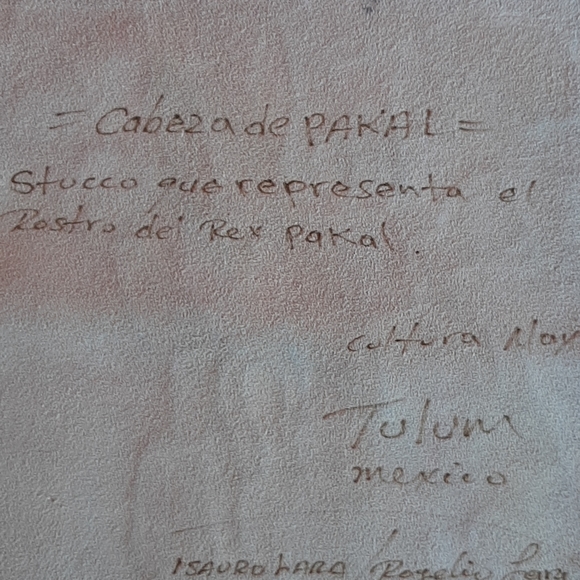 = Cabeza de PAKAL =
Stucco que representa el
Rostro de Rex Pakal.
cultura May
Tulum
mexico
ISAURO LARA Rogelio Lara